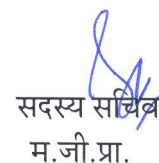 सदस्य सचिव
म.जी.प्रा.